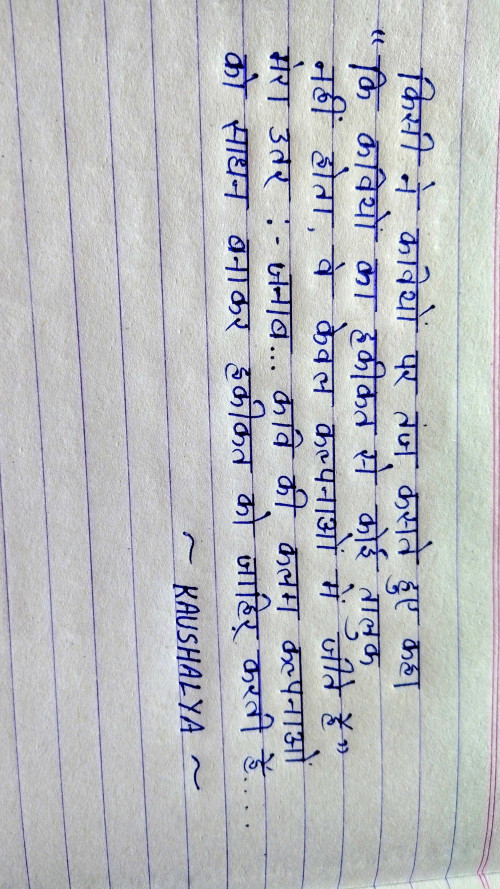 किसी ने कवियो पर तंज कसते हुए कहा
“ कि कवियो का हकीकत से कोई तालुक
नही होता, वे केवल कल्पनाओं मे जीते है”
मेरा उतर :- जनाब... कवि की कलम कल्पनाओं
को साधन बनाकर हकीकत को जाहिर करती है.....
~ KAUSHALYA ~